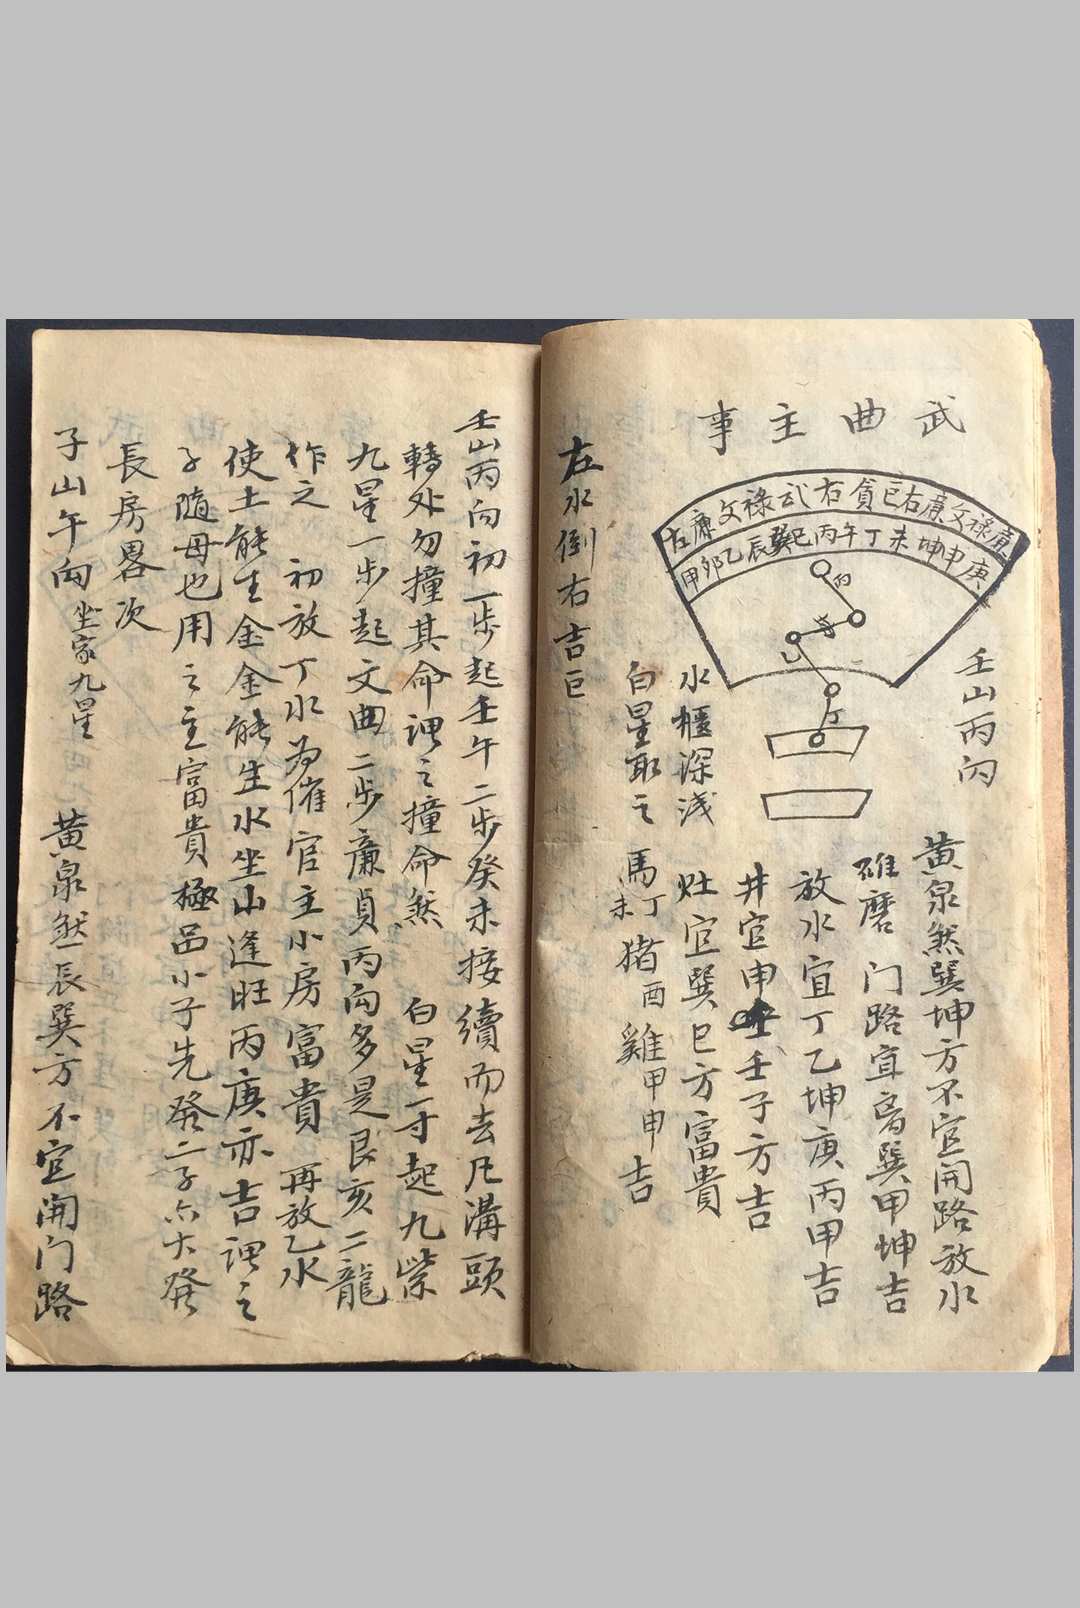 武曲主事
左廉文祿武右貪巨右廉文祿廉
甲卯乙辰巽巳丙午丁未坤申庚
壬山丙向
黄泉煞巽坤方不宜開路放水
碓磨 门路宜离巽甲坤吉
放水宜丁乙坤庚丙甲吉
井宜申壬子方吉
灶宜巽巳方富貴
水櫃深浅
白星取之 馬丁未猪酉雞甲申吉
左水倒右吉巨
壬山丙向初一步起壬午二步癸未接續而去凡溝頭
轉处勿撞其命謂之撞命煞 白星一寸起九紫
九星一步起文曲二步廉貞丙向多是艮亥二龍
作之 初放丁水为催官主小房富貴 再放乙水
使土能生金金能生水坐山逢旺丙庚亦吉謂之
子隨母也用之主富貴極品小子先發二子六大發
長房畧次
子山午向坐家九星 黄泉煞辰巽方不宜開门路